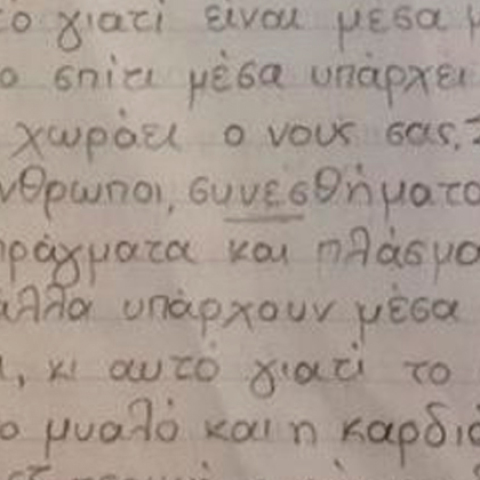 το γιατί είναι μέσα μ
ο σπίτι μέσα υπάρχει
χωράει ο νους σας.
νθρωποι, συνεσθήματα
ράγματα και πλάσμα
άλλα υπάρχουν μέσα
, κι αυτό γιατί το
ο μυαλό και η καρδιά